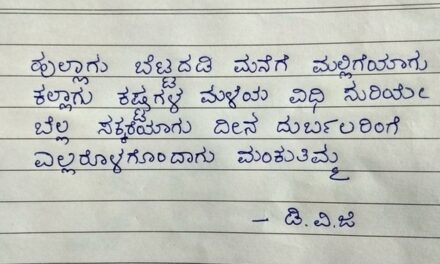 ಹುಲ್ಲಾಗು ಬೆಟ್ಟದಡಿ ಮನೆಗೆ ಮಲ್ಲಿಗೆಯಾಗು
ಕಲ್ಲಾಗು ಕಷ್ಟಗಳ ಮಳೆಯ ವಿಧಿ ಸುರಿಯೇ
ಬೆಲ್ಲ ಸಕ್ಕರೆಯಾಗು ದೀನ ದುರ್ಬಲರಿಂಗೆ
ಎಲ್ಲರೊಳಗೊಂದಾಗು ಮಂಕುತಿಮ್ಮ
– ಡಿ. ವಿ. ಜಿ